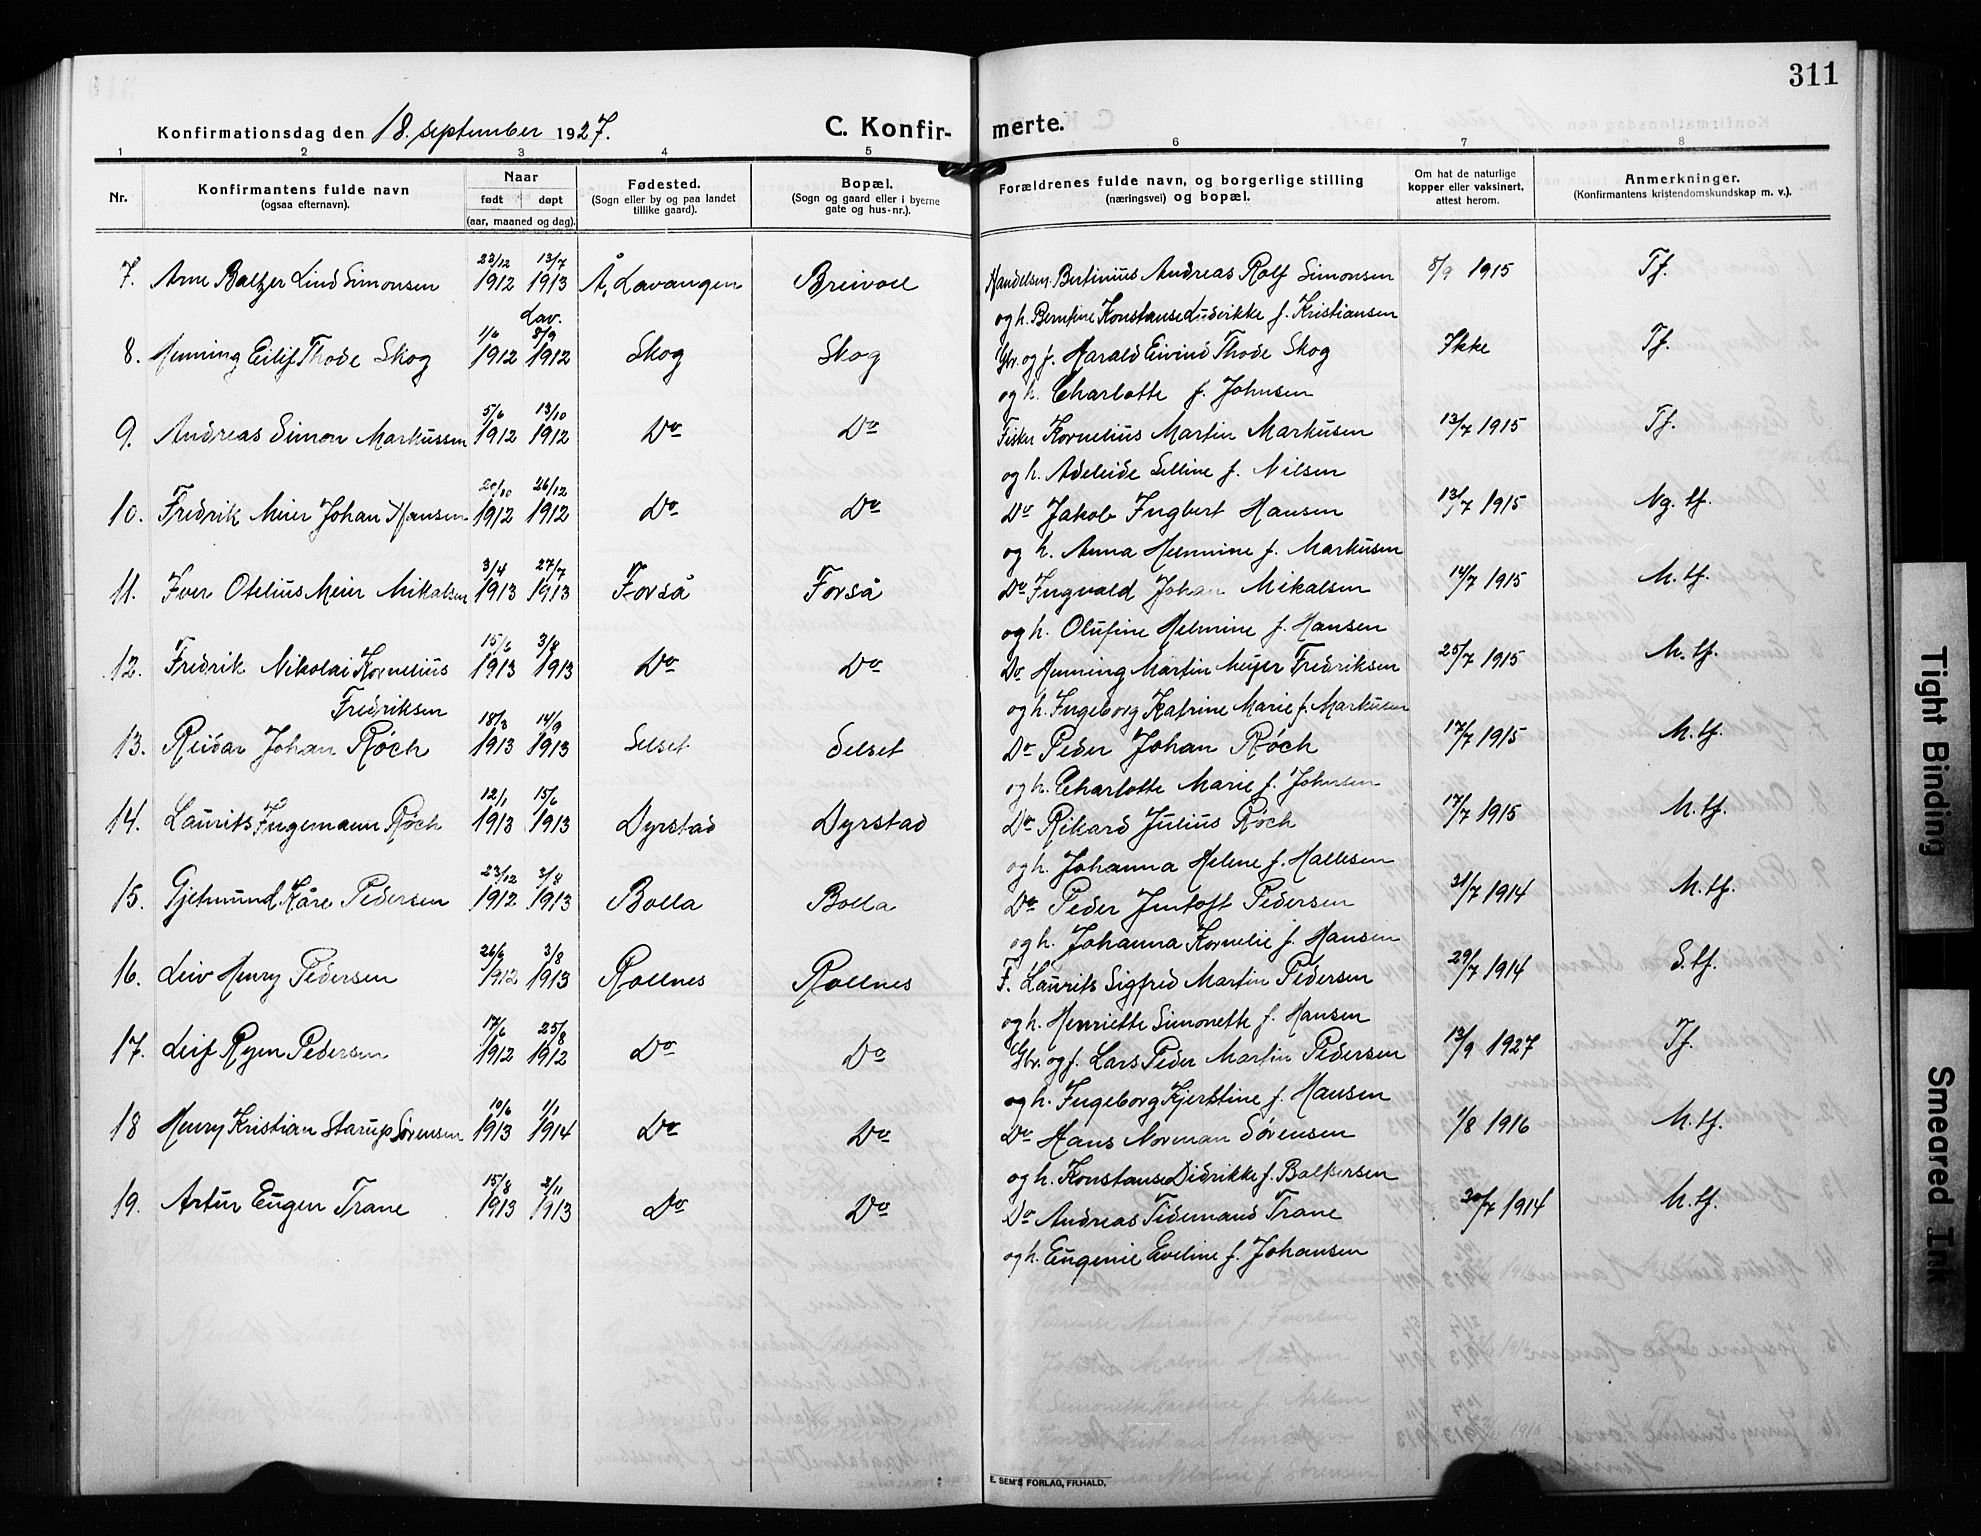 311
Konfirmationsdag den 18. september 1927.
C. Konfir- merte.
1 2 3 4 5 6 7 8
Nr.
Konfirmantens fulde navn
(ogsaa efternavn).
Naar
født døpt
(aar, maaned og dag).
Fødested.
(Sogn eller by og paa landet
tillike gaard).
Bopæl.
(Sogn og gaard eller i byerne
gate og hus-nr.).
Forældrenes fulde navn, og borgerlige stilling
(næringsvei) og bopæl.
Om hat de naturlige
kopper eller vaksinert,
attest herom.
Anmerkninger.
(Konfirmantens kristendomskundskap m. v.).
23/12 13/7
7. Arne Baltzer Lind Simonsen 1912 1913 Å, Lavangen Breivoll Handelsm. Bertinius Andreas Rolf Simonsen 8/9 1915 Tf.
Lav.
og h. Bernfine Konstanse Ludvikke f. Kristiansen
1/6 8/9
8. Henning Eilif Thode Skog 1912 1912 Skog Skog Gbr. og f. Harald Eivind Thode Skog Ikke Tf.
og h. Charlotte f. Johnsen
5/6 13/10
9. Andreas Simon Markussen 1912 1912 Do Do Fisker Kornelius Martin Markusen 13/7 1915 Tf.
og h. Adeleide Selline f. Nilsen
20/10 26/12
10. Fredrik Meier Johan Hansen 1912 1912 Do Do Do Jakob Ingbert Hansen 13/7 1915 Ng. tf.
og h. Anna Helmine f. Markusen
3/4 27/7
11. Iver Otelius Meier Mikalsen 1913 1913 Forså Forså Do Ingvald Johan Mikalsen 14/7 1915 M. tf.
og h. Olufine Helmine f. Hansen
15/6 3/8
12. Fredrik Nikolai Kornelius 1913 1913 Do Do Do Henning Martin Meyer Fredriksen 25/7 1915 M. tf.
Fredriksen
og h. Ingeborg Katrine Marie f. Markusen
18/3 14/9
13. Reidar Johan Røch 1913 1913 Selset Selset Do Peder Johan Røch 17/7 1915 M. tf.
og h. Charlotte Marie f. Johnsen
12/1 15/6
14. Laurits Ingemann Røch 1913 1913 Dyrstad Dyrstad Do Rikard Julius Røch 17/7 1915 M. tf.
og h. Johanna Helene f. Hallesen
23/12 3/8
15. Gjetmund Kåre Pedersen 1912 1913 Bolla Bolla Do Peder Jentoft Pedersen 31/7 1914 M. tf.
og h. Johanna Kornelie f. Hansen
26/6 3/8
16. Leiv Henry Pedersen 1912 1913 Rollnes Rollnes F. Laurits Sigfred Martin Pedersen 29/7 1914 S. tf.
og h. Henriette Simonette f. Hansen
17/6 25/8
17. Leif Ryen Pedersen 1912 1912 Do Do Gbr. og f. Lars Peder Martin Pedersen 13/9 1927 Tf.
og h. Ingeborg Kjerstine f. Hansen
10/6 1/1
18 Henry Kristian Starup Sørensen 1913 1914 Do Do Do Hans Norman Sørensen 1/8 1916 M. tf.
og h. Konstanse Didrikke f. Baltsersen
15/8 2/11
19. Artur Eugen Trane 1913 1913 Do Do Do Andreas Tidemand Trane 30/7 1914 M. tf.
og h. Eugenie Eveline f. Johansen
E. SEM'S FORLAG, FR.HALD.
Tight Binding
Smeared Ink